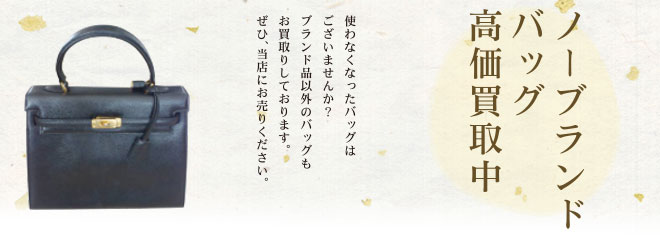 ノーブランド
バッグ
高価買取中
使わなくなったバッグは
ございませんか？
ブランド品以外のバッグも
お買取りしております。
ぜひ、当店にお売りください。